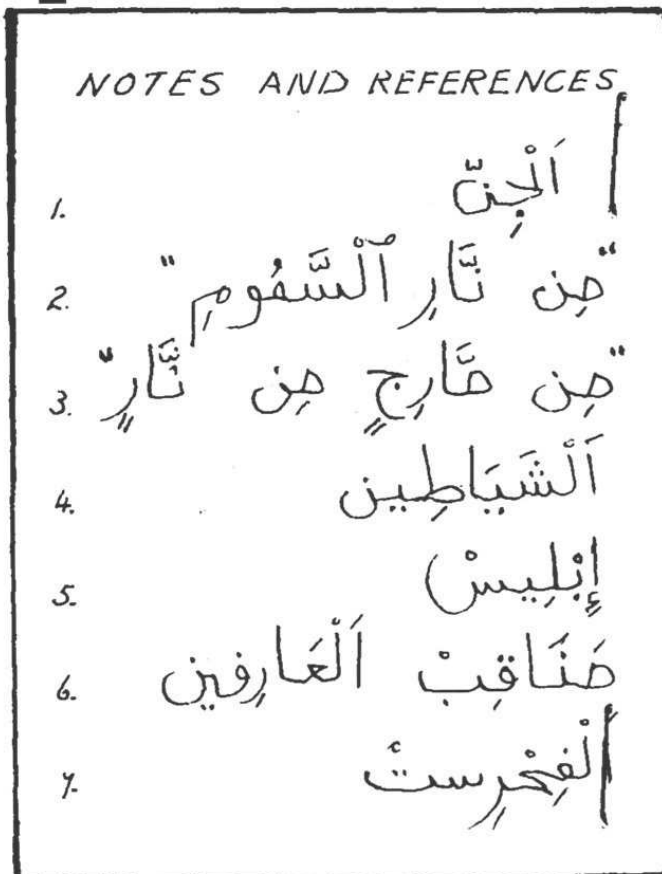 NOTES AND REFERENCES
1. اَلْجِنّ
2. "مِن نَّارِ ٱلْسَّمُومِ"
3. "مِن مَّارِجٍ مِن نَّارٍ"
4. اَلْشَيَاطِين
5. إِبْلِيسْ
6. مَنَاقِبْ اَلْعَارِفين
7. الْفِهْرِستْ